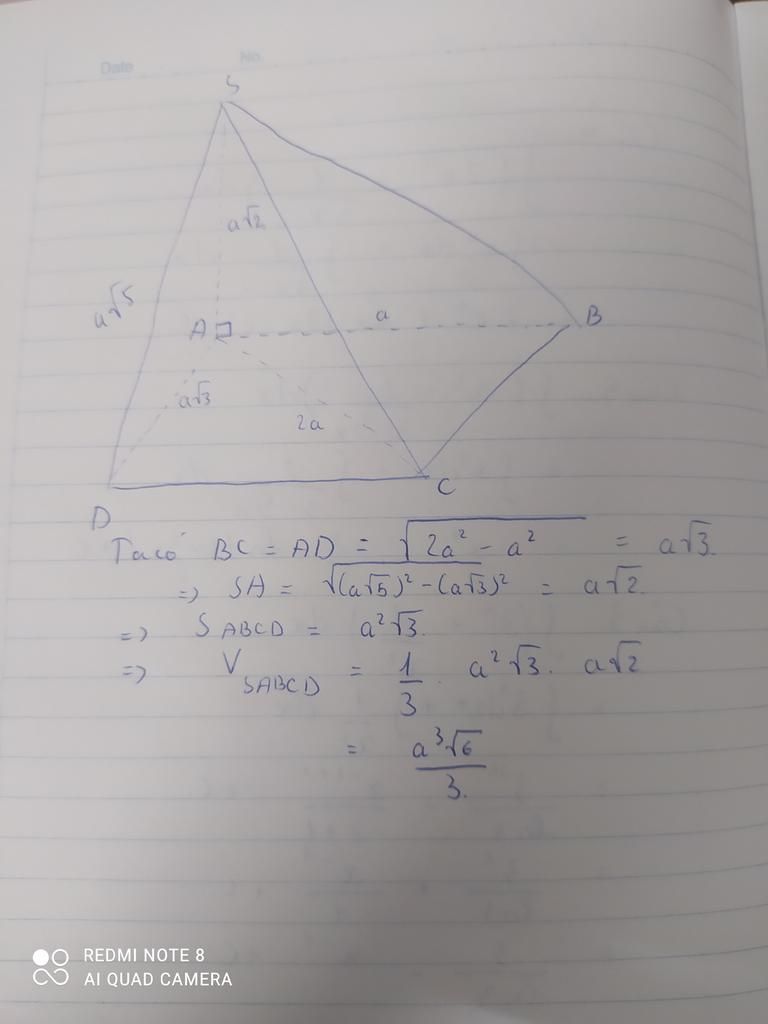 Date No.
S
a√2
a√5
A a B
a√3
2a
C
D
Ta có BC = AD = √(2a² - a²) = a√3.
=> SA = √((a√5)² - (a√3)²) = a√2.
=> S ABCD = a²√3.
=> V SABCD = 1/3 . a²√3 . a√2
= a³√6/3.
REDMI NOTE 8
AI QUAD CAMERA